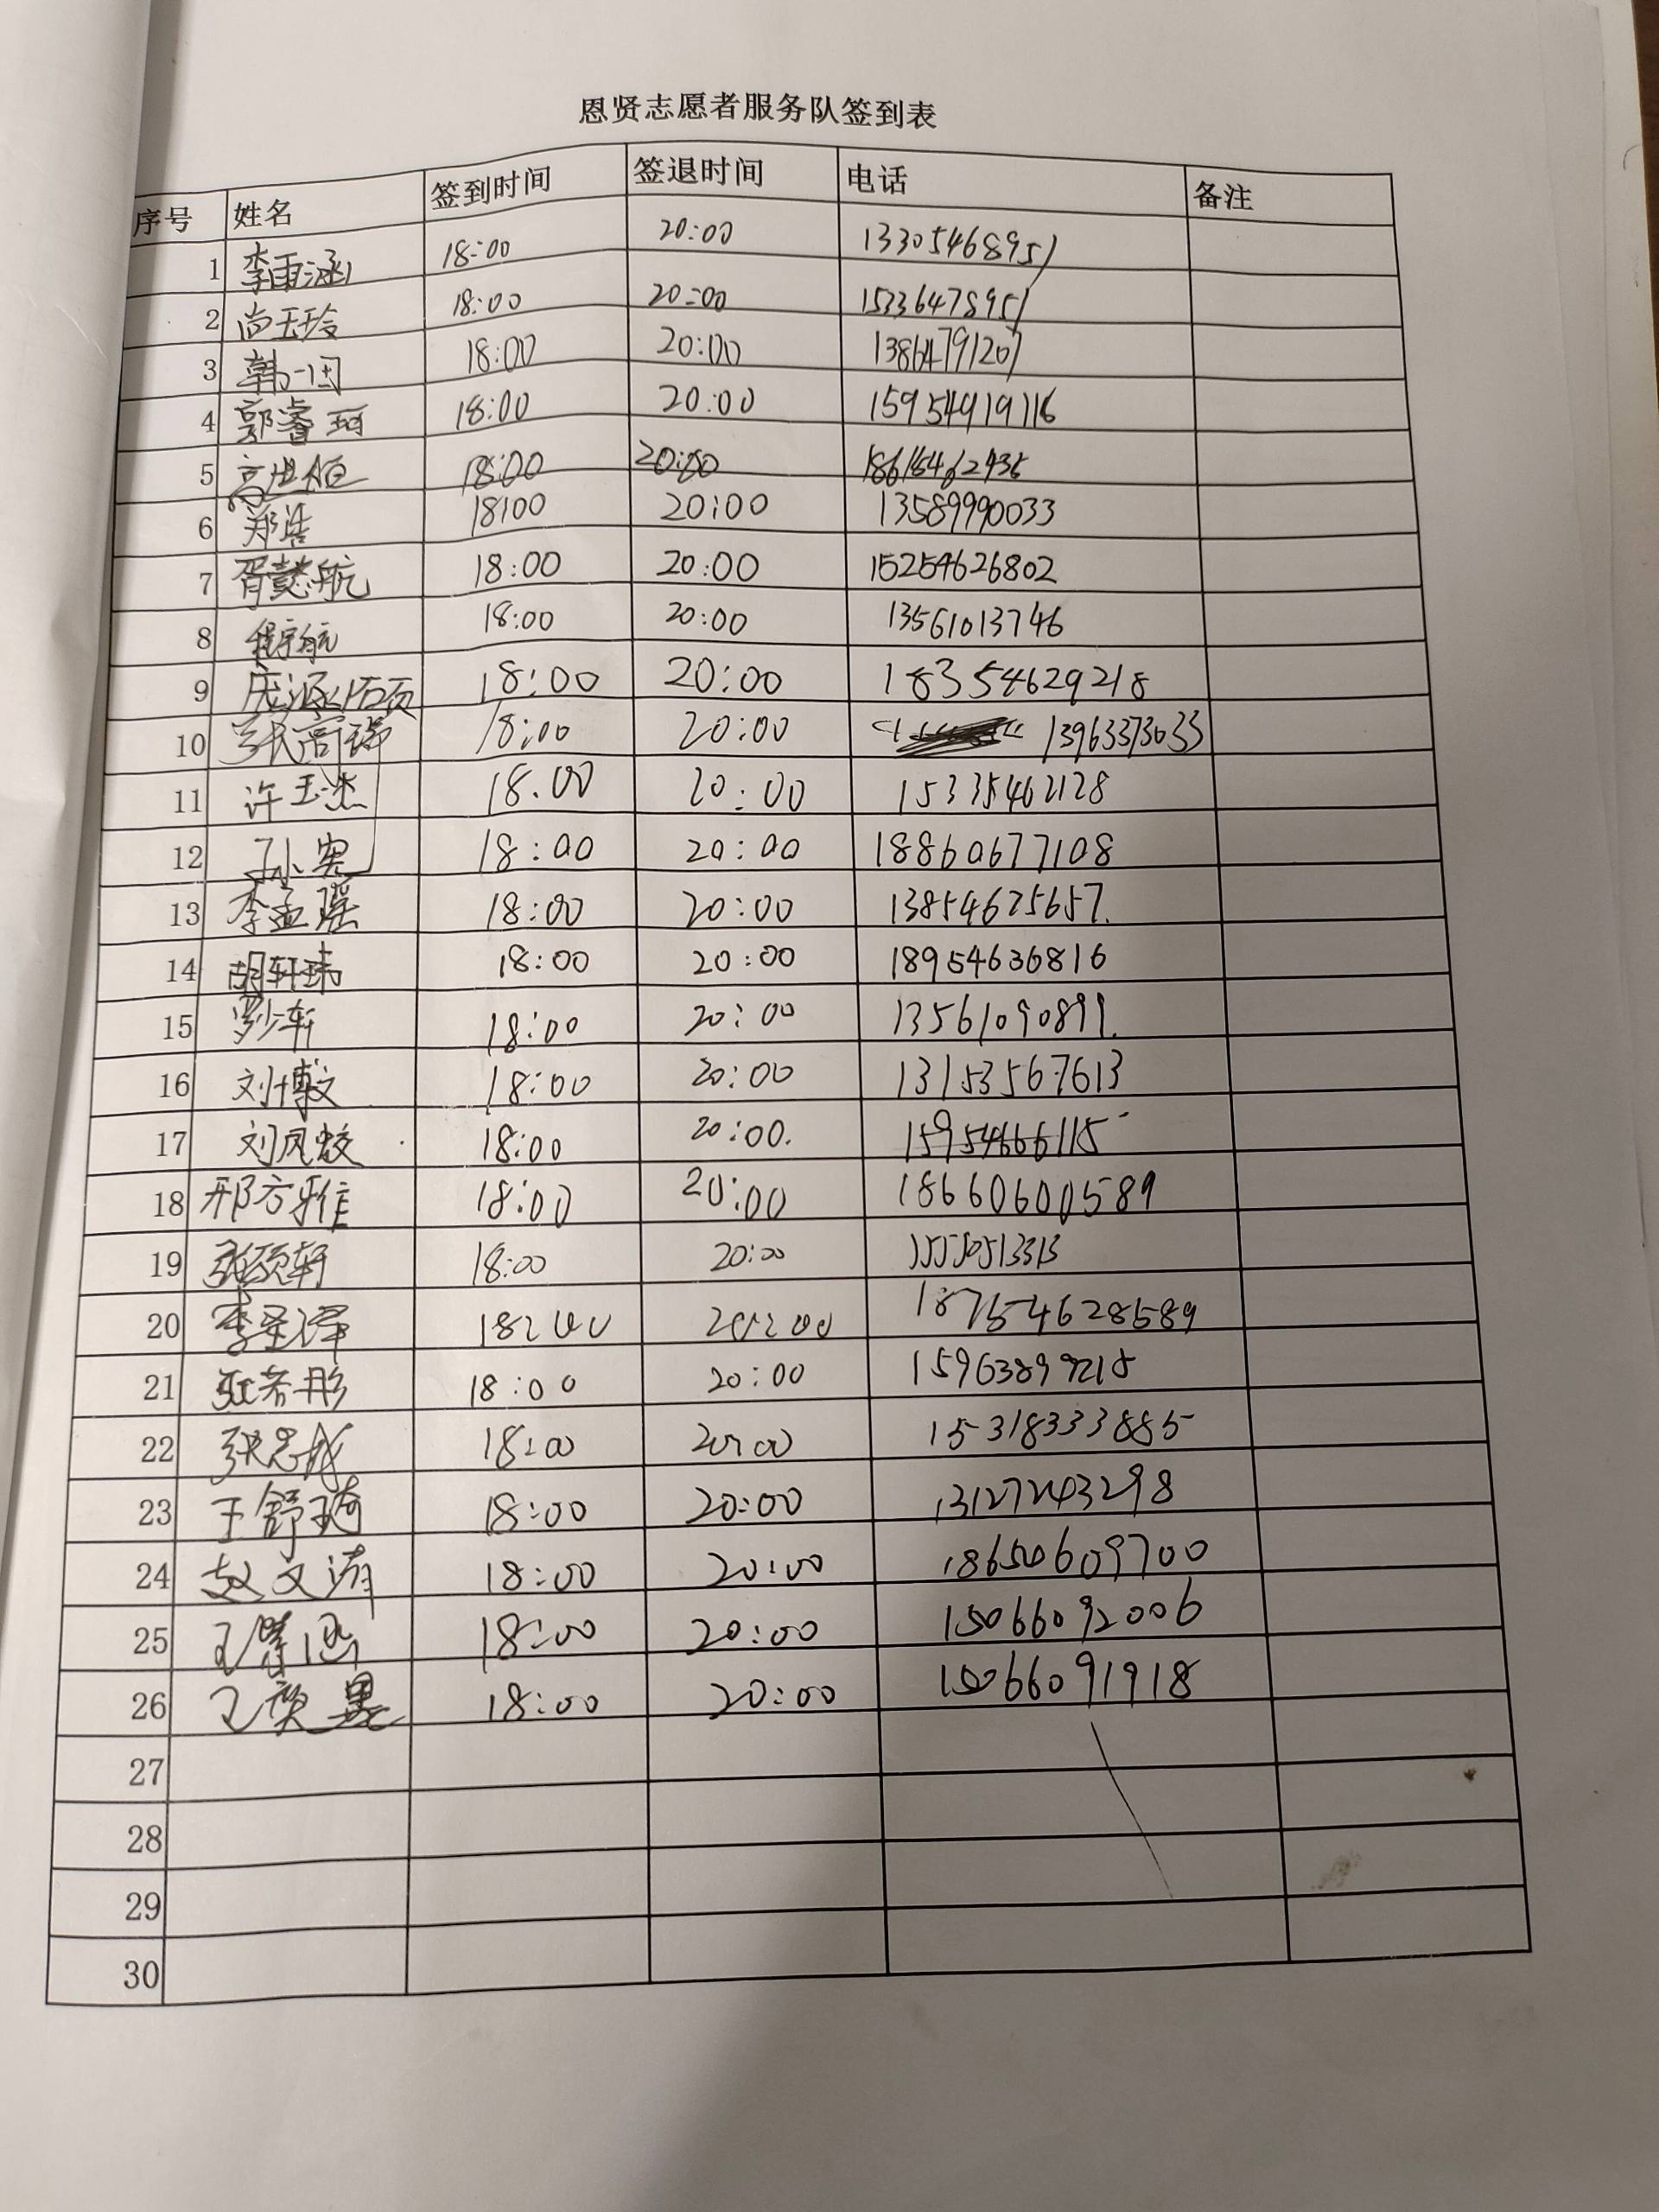 恩贤志愿者服务队签到表
序号 姓名 签到时间 签退时间 电话 备注
1 李雨涵 18:00 20:00 13305468951
2 尚玉玲 18:00 20:00 15336478951
3 韩一国 18:00 20:00 13864791207
4 郭睿珂 18:00 20:00 15954919716
5 高世恒 18:00 20:00 18615462935
6 郑浩 18:00 20:00 13589990033
7 胥懿航 18:00 20:00 15254626802
8 程宇航 18:00 20:00 13561013746
9 庞涵 18:00 20:00 18354629218
10 张高瑞 18:00 20:00 13963373033
11 许玉杰 18.00 20:00 15335462128
12 孙寞 18:00 20:00 18860677108
13 李孟瑶 18:00 20:00 13854625657.
14 胡轩玮 18:00 20:00 18954636816
15 轩 18:00 20:00 13561090899.
16 刘博文 18:00 20:00 13153567613
17 刘凤姣 18:00 20:00. 15954666115
18 邢方雅 18:00 20:00 18660600589
19 张硕轩 18:00 20:00 15550513313
20 李圣泽 18:00 20:00 187154628589
21 张若彤 18:00 20:00 15963899215
22 张志成 18:00 20:00 15318333885
23 王舒琦 18:00 20:00 13127243298
24 赵文清 18:00 20:00 18650609700
25 王馨涵 18:00 20:00 15066092006
26 王奕墨 18:00 20:00 15066091918
27
28
29
30